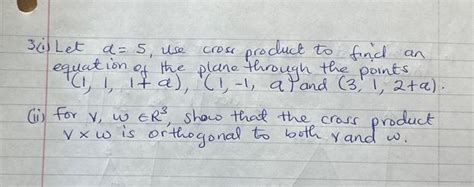 3(i) Let a = 5, use cross product to find an
equation of the plane through the points
(1, 1, 1+a), (1, -1, a) and (3, 1, 2+a).
(ii) For v, w ∈ R³, show that the cross product
v × w is orthogonal to both v and w.